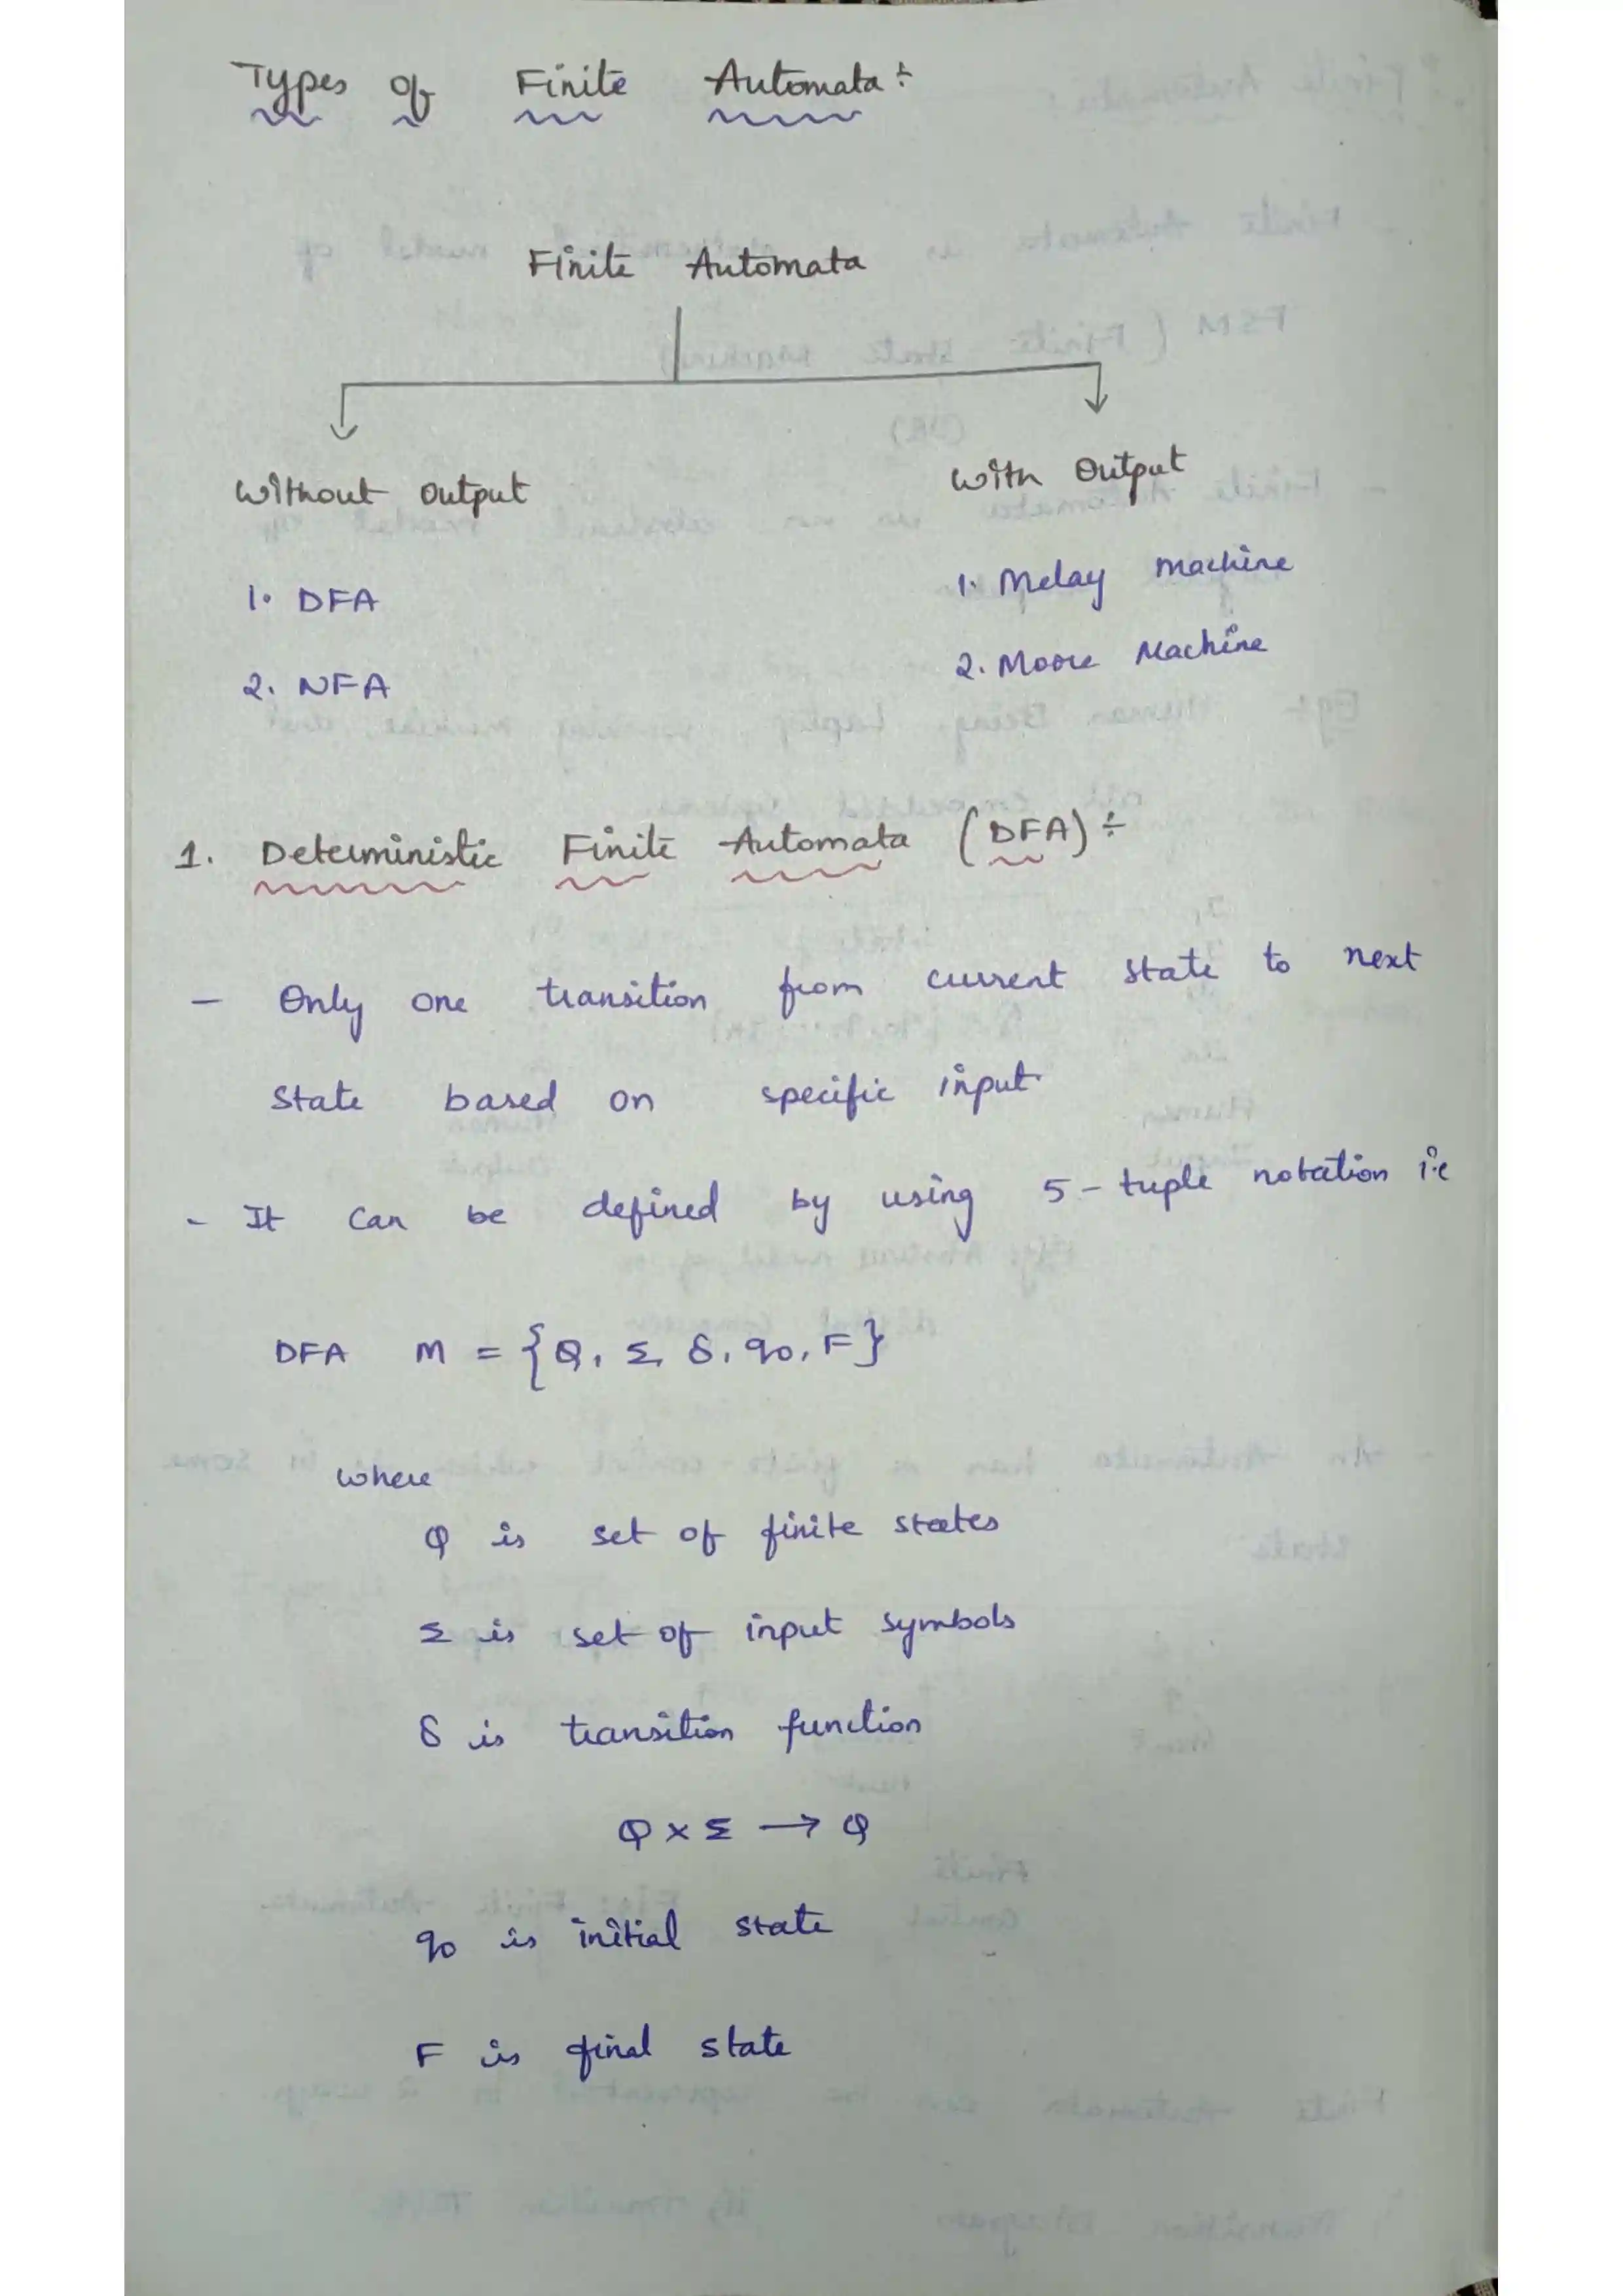 Types of Finite Automata :-
Finite Automata
Without Output
With Output
1. DFA
1. Melay Machine
2. NFA
2. Moore Machine
1. Deterministic Finite Automata (DFA) :-
- Only one transition from current state to next
state based on specific input
- It can be defined by using 5-tuple notation i.e
DFA M = {Q, Σ, δ, q0, F}
where
Q is set of finite states
Σ is set of input symbols
δ is transition function
Q × Σ → Q
q0 is initial state
F is final state